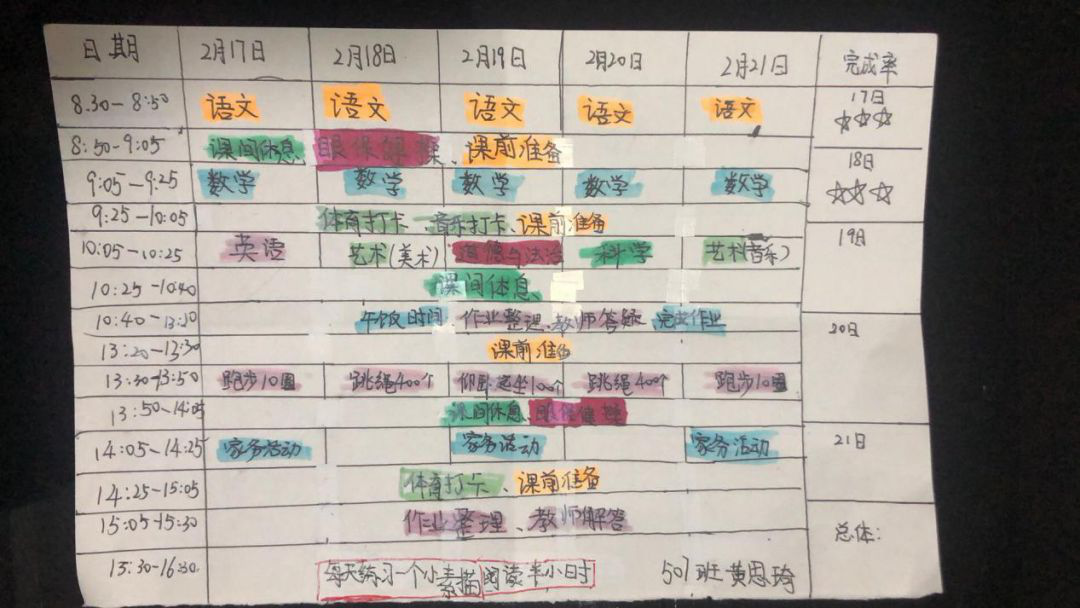 日期 2月17日 2月18日 2月19日 2月20日 2月21日 完成率
8:30-8:50 语文 语文 语文 语文 语文 17日
☆☆☆
8:50-9:05 课间休息、眼保健操、课前准备
18日
9:05-9:25 数学 数学 数学 数学 数学 ☆☆☆
9:25-10:05 体育打卡、音乐打卡、课前准备
19日
10:05-10:25 英语 艺术(美术) 道德与法治 科学 艺术(音乐)
10:25-10:40 课间休息
10:40-13:20 午饭时间 作业整理、教师答疑、完成作业
20日
13:20-13:30 课前准备
13:30-13:50 跑步10圈 跳绳400个 仰卧起坐100个 跳绳400个 跑步10圈
13:50-14:05 课间休息、眼保健操
14:05-14:25 家务活动 家务活动 家务活动 21日
14:25-15:05 体育打卡、课前准备
15:05-15:30 作业整理、教师解答
总体:
15:30-16:30 每天练习一个小素描 阅读半小时 501班 黄思琦